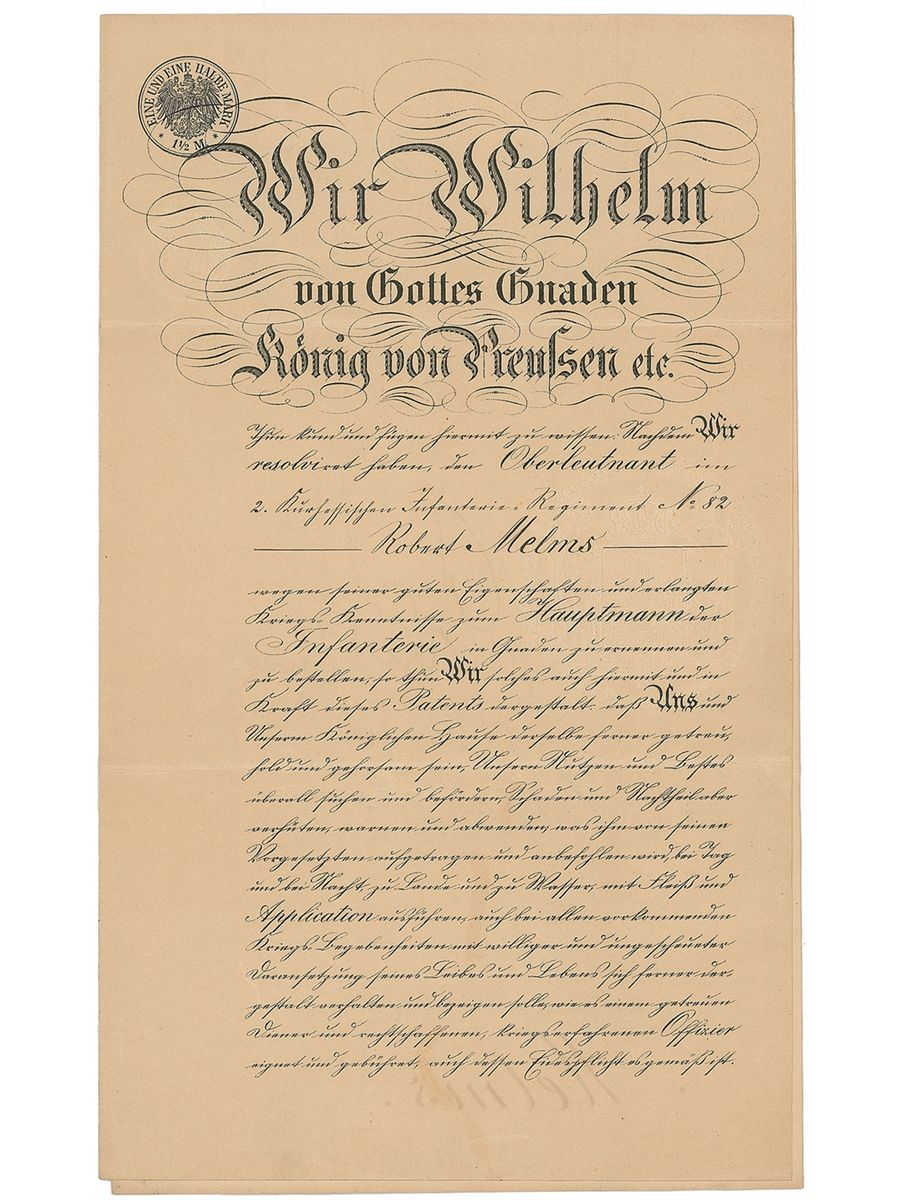 EINE UND EINE HALBE MARK
* 1½ M. *
Wir Wilhelm
von Gottes Gnaden
König von Preußen etc.
Thun kund und fügen hiermit zu wissen: Nachdem Wir
resolviret haben, den Oberleutnant im
2. Kurhessischen Infanterie-Regiment No 82
Robert Melms
wegen seiner guten Eigenschaften und erlangten
Kriegs-Kenntnisse zum Hauptmann der
Infanterie in Gnaden zu ernennen und
zu bestellen, so thun Wir solches auch hiermit und in
Kraft dieses Patents dergestalt: daß Uns und
Unserm Königlichen Hause derselbe ferner getreu,
hold und gehorsam sein, Unsern Nutzen und Bestes
überall suchen und befördern, Schaden und Nachtheil aber
verhüten, warnen und abwenden; was ihm von seinen
Vorgesetzten aufgetragen und anbefohlen wird, bei Tag
und bei Nacht, zu Lande und zu Wasser, mit Fleiß und
Application ausführen, auch bei allen vorkommenden
Kriegs-Begebenheiten mit williger und ungescheueter
Daransetzung seines Leibes und Lebens sich ferner der-
gestalt verhalten und bezeigen solle, wie es einem getreuen
Diener und rechtschaffenen, kriegserfahrenen Offizier
eignet und gebühret, auch dessen Eidespflicht es gemäß ist.